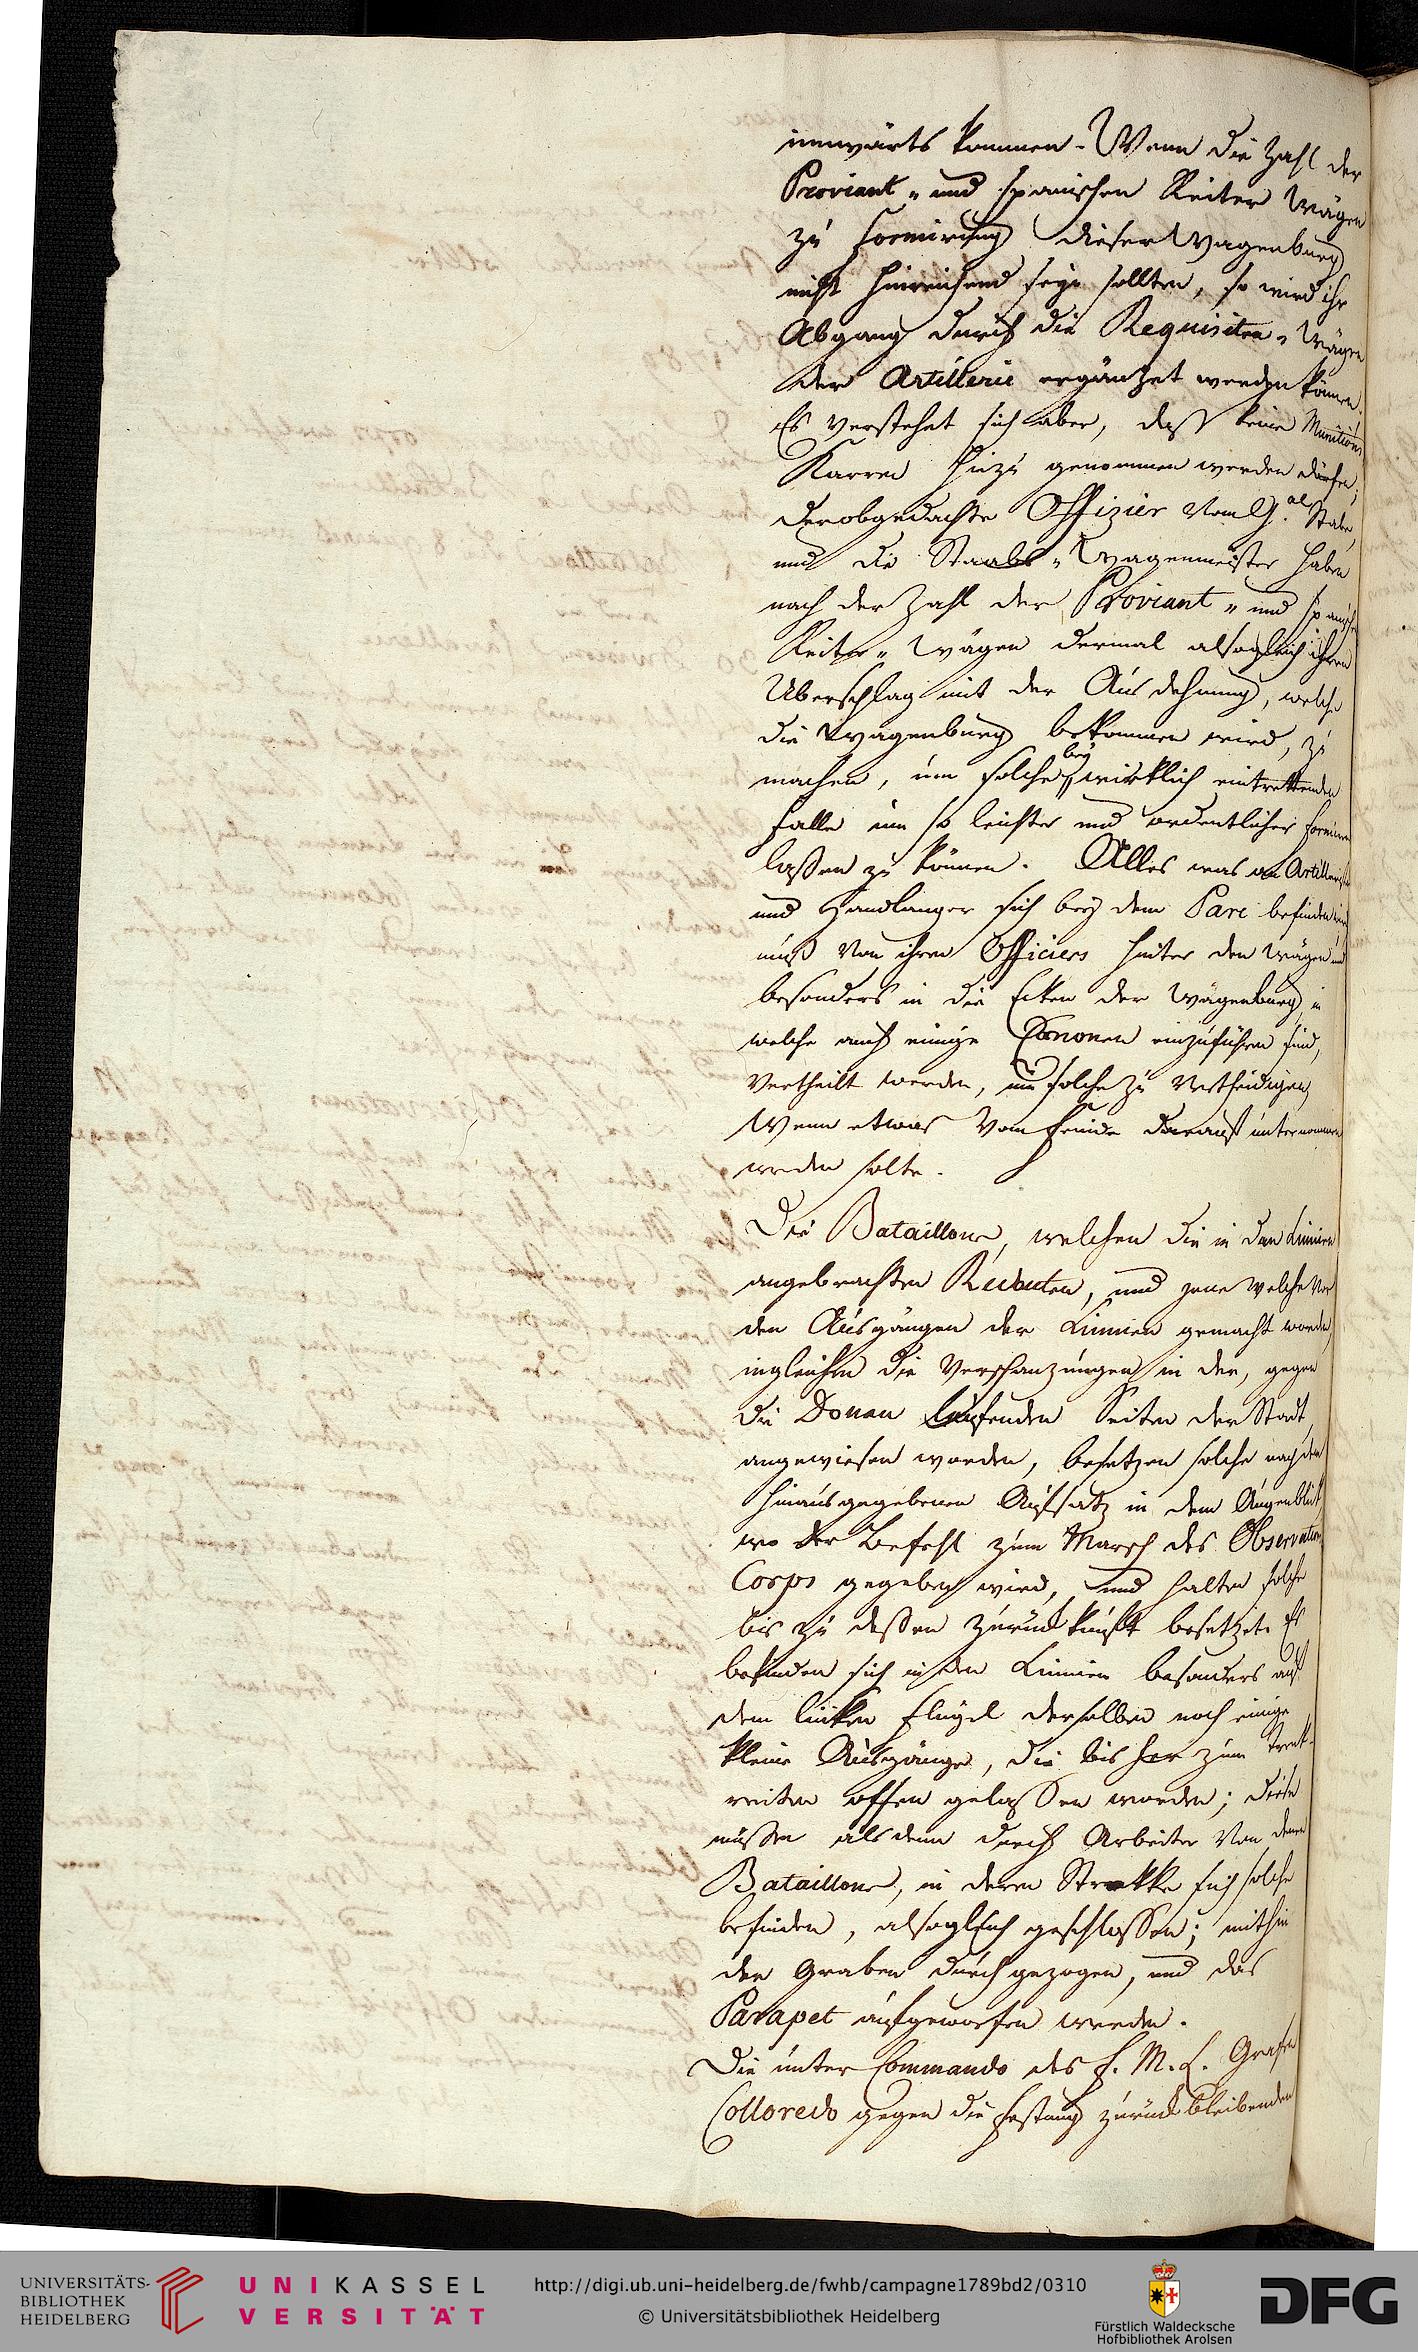 innwärts kommen. Wenn die Zahl der
Proviant- und spanischen Reiter Wägen
zu Formirung dieser Wagenburg
nicht hinreichend seyn sollten, so wird ihr
Abgang durch die Requisiten- Wägen
der Artillerie ergänzet werden können.
Es verstehet sich aber, daß keine Munitions
Karren hiezu genommen werden dürfen;
der obgedachte Offizier vom G.al Stabe,
und die Staabs- Wagenmeister haben
nach der Zahl der Proviant- und spanische
Reiter- Wägen dermal alsogleich ihren
Überschlag mit der Ausdehnung, welche
die Wagenburg bekommen wird, zu
machen, um solche bey wirklich eintrettenden
Falle um so leichter und ordentlicher formiren
laßen zu können. Alles was an Artillerist
und Handlanger sich bey dem Parc befinden wird
muß von ihren Officiers hinter den Wägen und
besonders in die Ecken der Wagenburg, in
welche auch einige Canonen einzuführen sind,
vertheilt werden, um solche zu vertheidigen
Wenn etwas vom Feinde darauf unternommen
werden solte.
Die Bataillons, welchen die in den Linnien
angebrachten Redouten, und jene welche vor
den Ausgängen der Linnien gemacht worden,
ingleichen die Verschanzungen in der, gegen
die Donau laufenden Seiten der Stadt
angewiesen worden, besetzen solche nach den
hinausgegebenen Aufsatz in dem Augenblick
wo der Befehl zum Marsch des Observations
Corps gegeben wird, und halten solche
bis zu deßen Zurückkunft besetzet. Es
befinden sich in den Linnien besonders auf
dem linken Flügel derselben noch einige
kleine Ausgänge, die bisher zum Trenk-
reiten offen gelassen worden; diese
müssen alsdenn durch Arbeiter von denen
Bataillons, in deren Strekke sich solche
befinden, alsogleich geschlossen; mithin
der Graben durchgezogen, und das
Parapet aufgeworfen werden.
Die unter Commando des F. M. L. Grafen
Colloredo gegen die Festung zurückbleibenden
UNIVERSITÄTS-
BIBLIOTHEK
HEIDELBERG
UNIKASSEL
VERSITÄT
http://digi.ub.uni-heidelberg.de/fwhb/campagne1789bd2/0310
© Universitätsbibliothek Heidelberg
Fürstlich Waldecksche
Hofbibliothek Arolsen
DFG